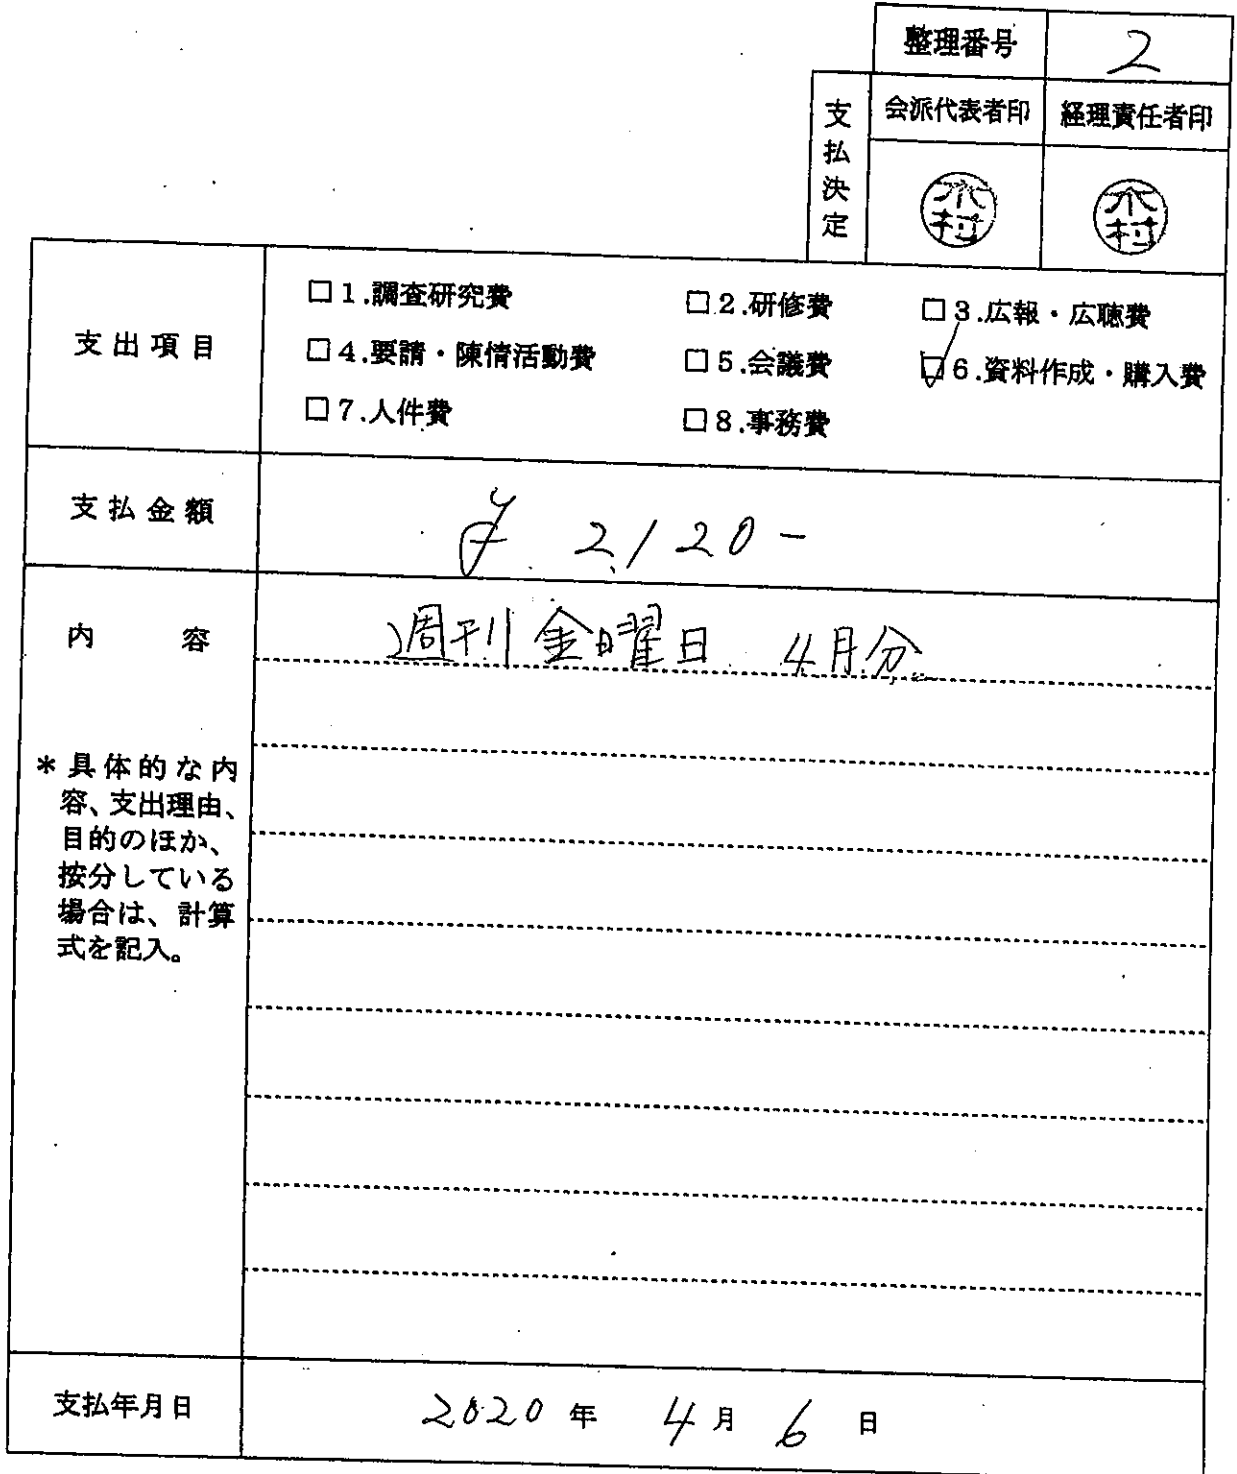 整理番号 2
支払決定 会派代表者印 経理責任者印
木村 木村
支出項目
□1.調査研究費 □2.研修費 □3.広報・広聴費
□4.要請・陳情活動費 □5.会議費 ☑6.資料作成・購入費
□7.人件費 □8.事務費
支払金額 ¥ 2,120-
内容 週刊金曜日 4月分
*具体的な内
容、支出理由、
目的のほか、
按分している
場合は、計算
式を記入。
支払年月日 2020年 4月 6日